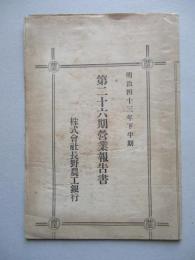 明治四十三年下半期
第二十六期營業報告書
株式會社長野農工銀行